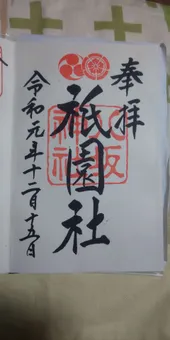 奉拝
祇園社
八坂神社
令和元年十二月十五日